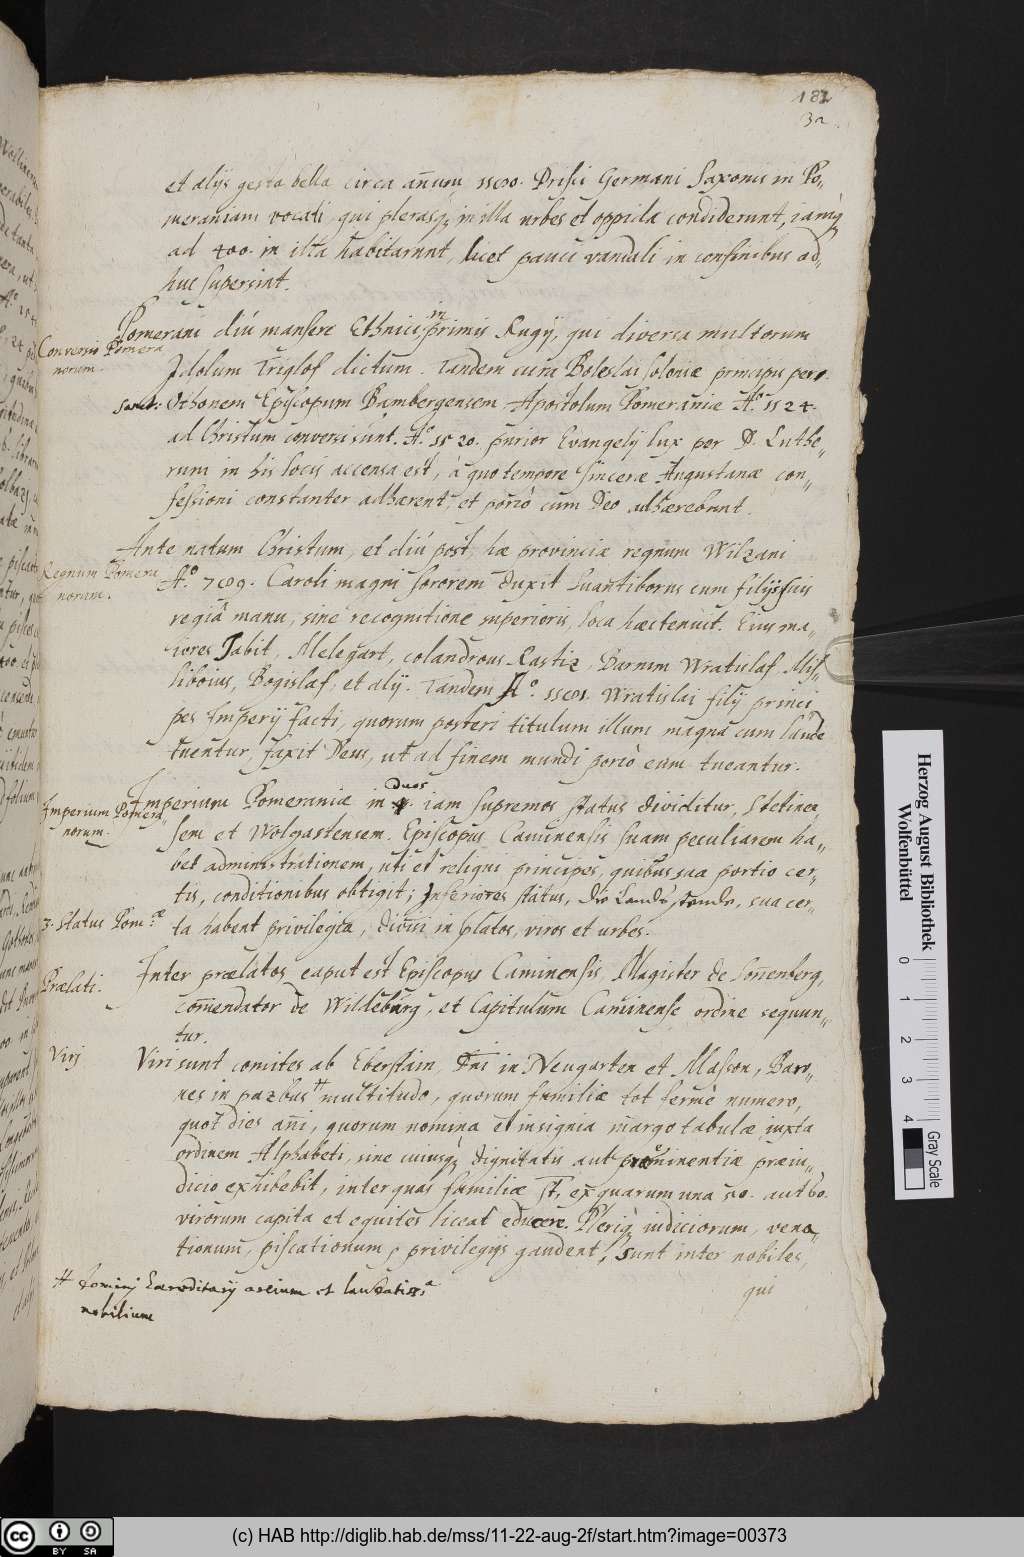 182
32
et alijs gesta bella circa añum 1100. Prisci Germani Saxones in Po„
meraniam vocati, qui plerasq; in illa urbes et oppida condiderunt, iamq;
ad 400. in ista habitarunt, licet pauci vandali in confinibus ad„
huc supersint.
Pomerani diú mansere Ethnici, in primis Rugij, qui diversa multorum
Conversio Pomera
norum.
Idolum Triglof dictum. Tandem cura Boleslai Poloniæ principis per
Sanct: Othonem Episcopum Bambergensem Apostolum Pomeraniæ A.º 1124.
ad Christum conversi sunt. A.º 1520. purior Evangelij lux per D. Luthe„
rum in his locis accensa est, à quo tempore sinceræ Augustanæ con„
fessioni constanter adhærent, et porrò cum Deo adhærebunt.
Ante natum Christum, et diú post, hæ provinciæ regnum Wilzani
Regnum Pomera
norum.
A.º 789. Caroli magni sororem duxit Suantiborus cum filijs suis
regiâ manu, sine recognitione superioris, loca hæc tenuit. Eius ma„
iores Jabit, Melegart, colandrous Rastiz, Barnim Wratislaf Mis„
liboius, Bogislaf, et alij. Tandem A.º 1181. Wratislai filij princi
pes Imperij facti, quorum posteri titulum illum magna cum laude
tuentur, faxit Deus, ut ad finem mundi porrò eum tueantur.
Imperium Pomeraniæ in duos iam supremos status dividitur, Stetinen
Imperium Pomera„
norum.
sem et Wolgastensem. Episcopus Caminensis suam peculiarem ha„
bet administrationem, uti et reliqui principes, quibus sua portio cer„
tis, conditionibus obtigit; Inferiores status, die Landtstende, sua cer„
3. Status Pom:æ
ta habent privilegia, divisi in prælatos, viros et urbes.
Prælati.
Inter prælatos caput est Episcopus Caminensis, Magister de Soñenberg,
Coṁendator de Wildeburg, et Capitulum Caminense ordine sequun„
tur.
Virj
Viri sunt comites ab Eberstain, Dñi in Neugarten et Masson, Baro„
nes in pazbus # multitudo, quorum familiæ tot fermè numero,
quot dies añi, quorum nomina et insignia margo tabulæ iuxta
ordinem Alphabeti, sine cuiusq; dignitatis aut præeminentiæ præiu„
dicio exhibebit, inter quas familiæ st, ex quarum una 50. aut 60.
virorum capita et equites liceat educere. Pleriq; iudiciorum, vena„
tionum, piscationum, privilegijs gaudent, sunt inter nobiles,
qui
# Dominj hæreditarij arcium et laudatiss.ª
nobilium
Herzog August Bibliothek
Wolfenbüttel
0 1 2 3 4
Gray Scale
cc BY SA
(c) HAB http://diglib.hab.de/mss/11-22-aug-2f/start.htm?image=00373